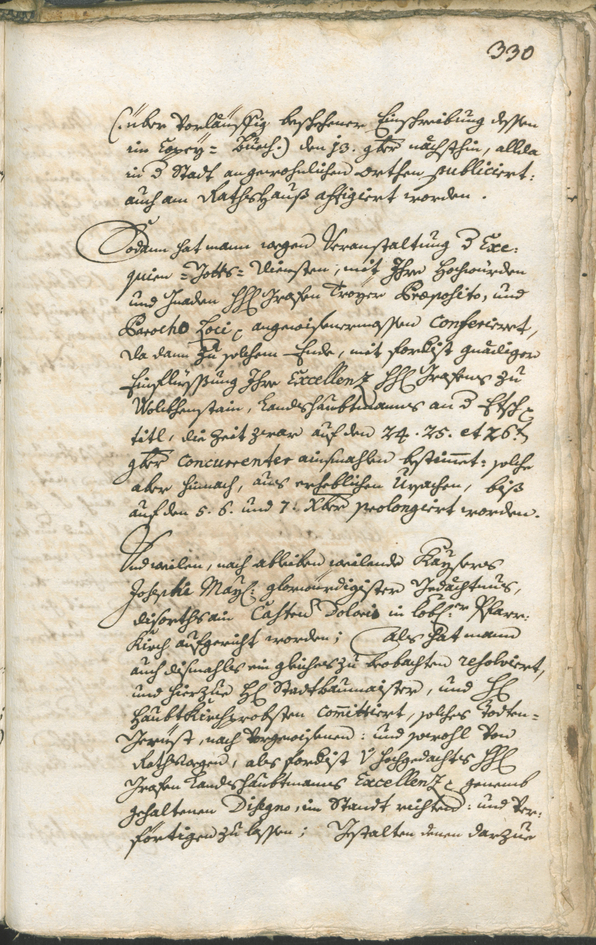 330
(: über vorläuffig beschehener Einschreibung dessen
im Copey= Buech :) den 13. gber nächsthin, allda
in d Stadt angewohnlichen Orthen publiciert:
auch am RathsHauß affigiert worden.
Sodann hat mann wegen Veranstaltung d Exe:
quien=Gotts=Diensten, mit Ihro Hochwürden
und Gnaden HH Grafen Troyer Præposito, und
Parocho Loci, angewisenermassen conferirt,
da dann zu solchem Ende, mit gnädiger
Einflüssung Ihro Excellenz HH Grafens zu
Wolkhenstain, Landtshaubtmanns an d Etsch
titl, die Zeit zwar auf den 24. 25. et 26t
gber concurrenter ainsmahlen bestimmt: solche
aber hirnach, aus erheblichen Ursachen, biß
auf den 5. 6. und 7. Xber prolongiert worden.
Und weilen, nach ableiben weilandt Kaysers
Josephi May: glorwürdigister Gedächtnus,
diserorths ain Castrum Doloris in lobl: Pfarr:
Kirch aufgericht worden; Als hat mann
auch dismahls ein gleiches zu beobachten resolviert,
und hierzue H Stadtbaumaister, und H
Haubtkirchprobsten committiert, solches Todten=
Gerüst, nach vorgewisenen: und sowohl von
Rathswegen, als hochgedachts HH
Grafen Landtshaubtmanns Excellenz genemb
gehaltenen Disegno, in Standt richten: und ver:
förtigen zu lassen; Gestalten denen darzue